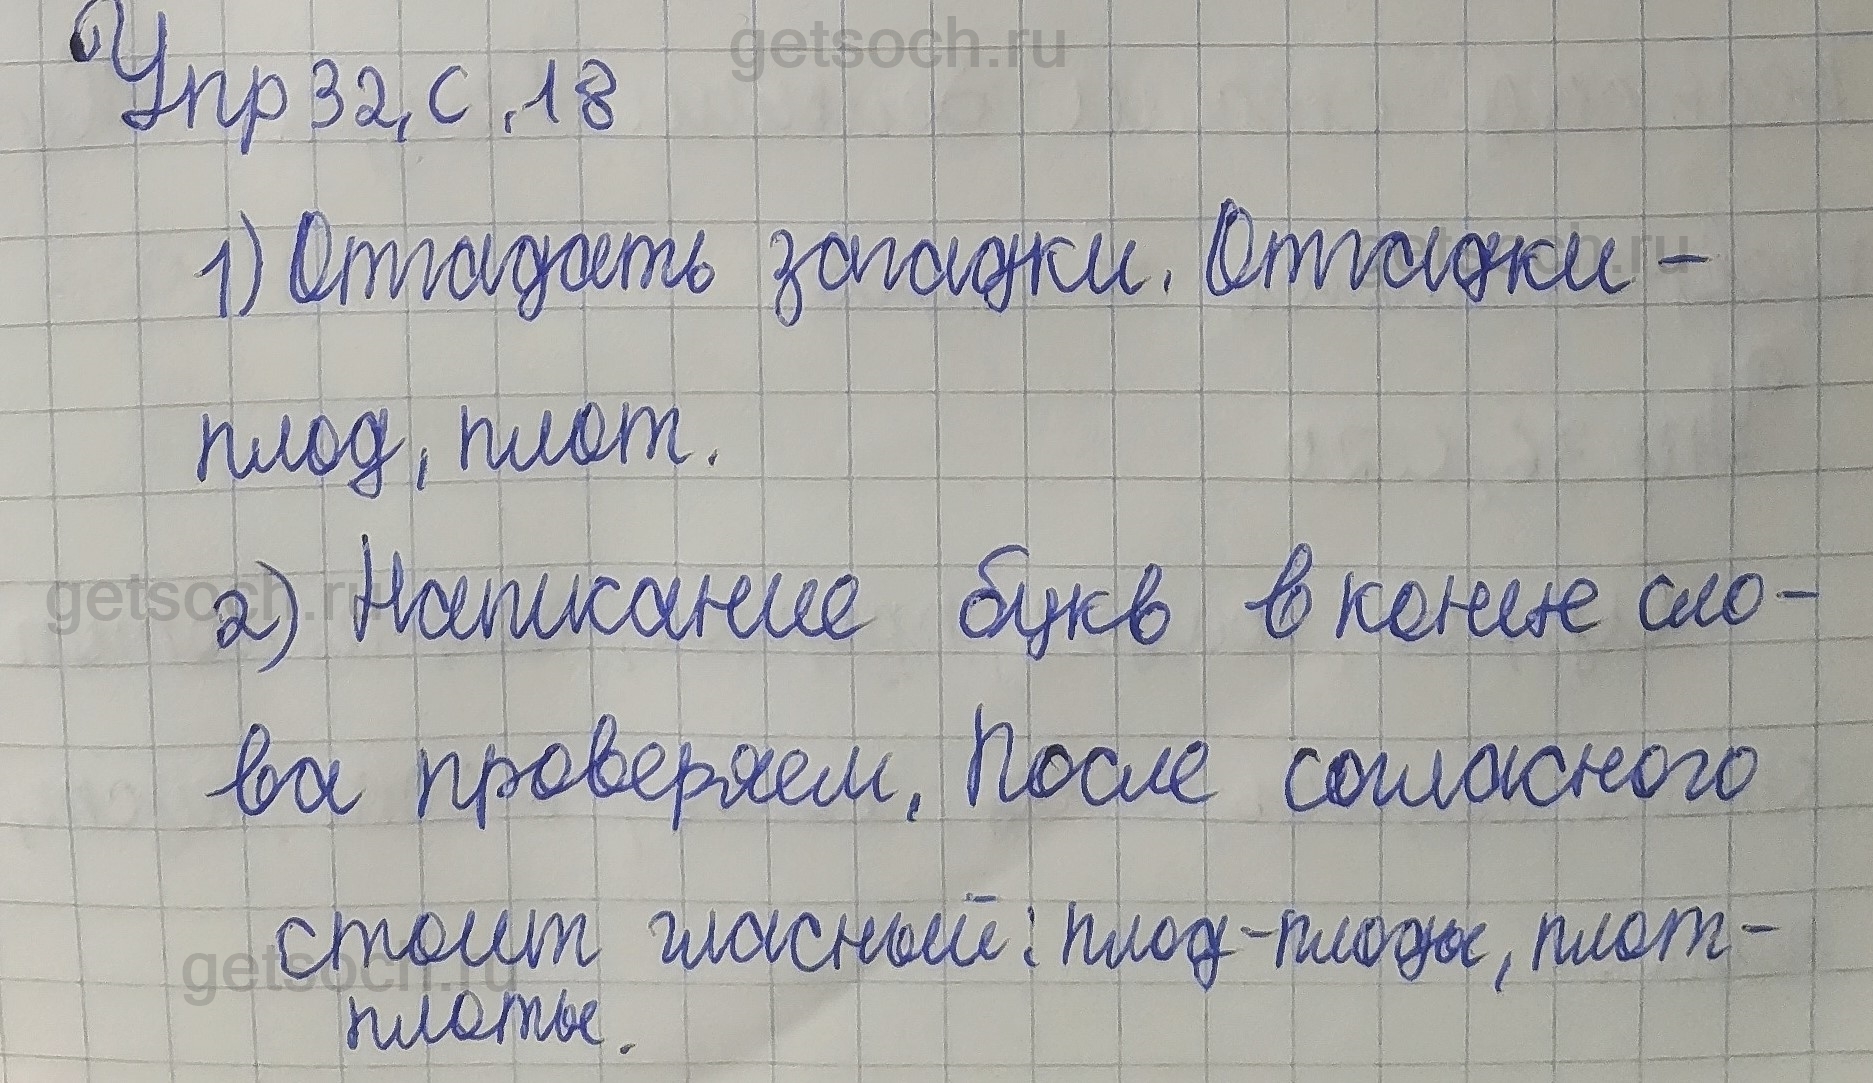 getsoch.ru
Упр 32, с. 18
1) Отгадать загадки. Отгадки -
getsoch.ru
плод, плот.
2) Написание букв в конце сло-
getsoch.ru
ва проверяем. После согласного
стоит гласный: плод-плоды, плот-
getsoch.ru
плоты.